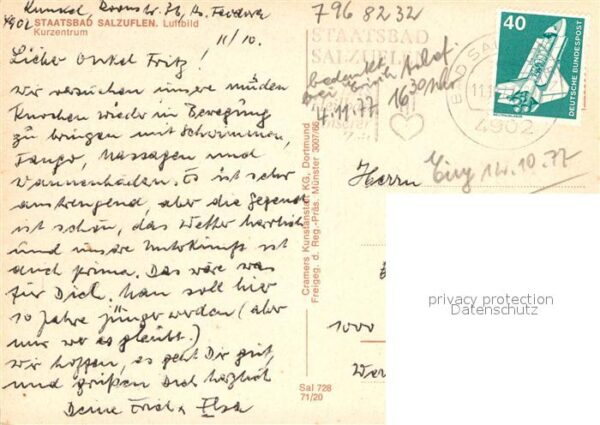 796 8232
4902 STAATSBAD SALZUFLEN. Luftbild
Kurzentrum
11/10.
Lieber Onkel Fritz!
wir versuchen unsere müden
Knochen wieder in Bewegung
zu bringen mit Schwimmen,
Tango, Massagen und
Wannenbäder. Es ist sehr
anstrengend, aber die Gegend
ist schön, das Wetter herrlich
und unsere Unterkunft ist
auch prima. Das wäre was
für Dich. Man soll hier
10 Jahre jünger werden (aber
nur wer es glaubt.)
Wir hoffen, es geht Dir gut,
und grüßen Dich herzlich
Deine Erich u Elsa
STAATSBAD
SALZUFLEN
bedankt
bei Erich telef.
4.11.77 16 30 Uhr
4902
40
DEUTSCHE BUNDESPOST
Cramers Kunstanstalt KG, Dortmund
Freigeg. d. Reg.-Präs. Münster 3007/68
Sal 728
71/20
Herrn
Eing 14.10.77
1000
privacy protection
Datenschutz